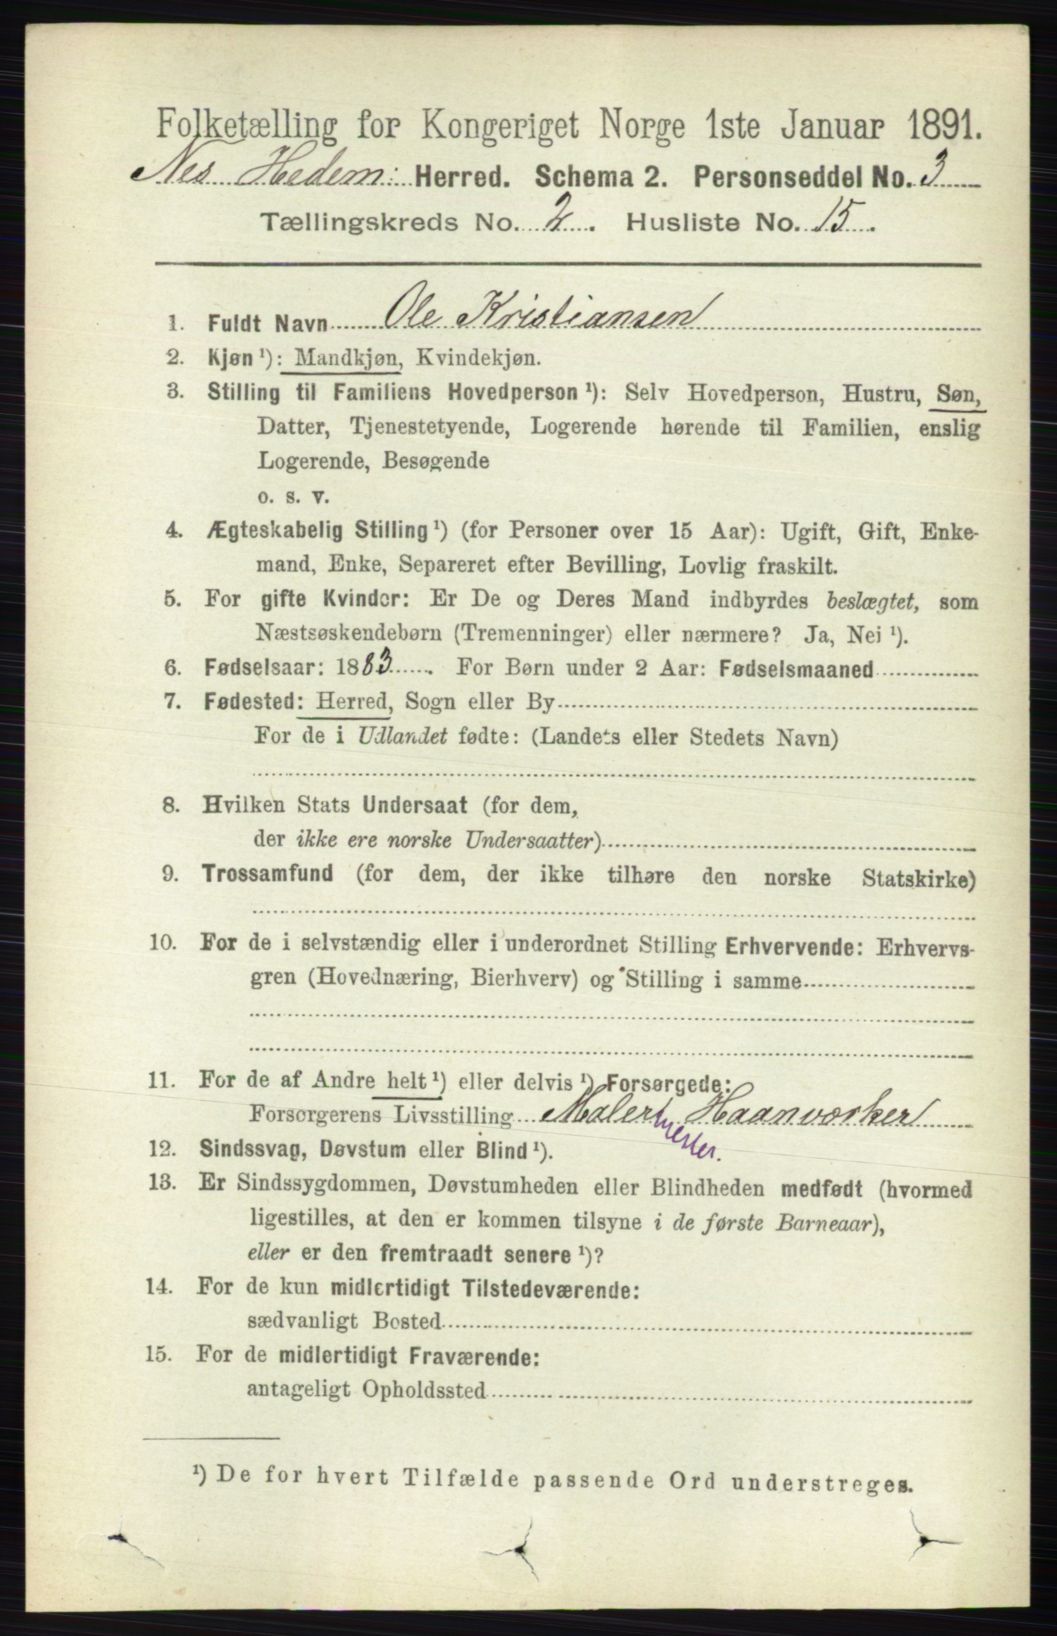 Folketælling for Kongeriget Norge 1ste Januar 1891.
Nes Hedem: Herred. Schema 2. Personseddel No. 3
Tællingskreds No. 2. Husliste No. 15.
1. Fuldt Navn Ole Kristiansen
2. Kjøn ¹): Mandkjøn, Kvindekjøn.
3. Stilling til Familiens Hovedperson ¹): Selv Hovedperson, Hustru, Søn,
Datter, Tjenestetyende, Logerende hørende til Familien, enslig
Logerende, Besøgende
o. s. v.
4. Ægteskabelig Stilling ¹) (for Personer over 15 Aar): Ugift, Gift, Enke-
mand, Enke, Separeret efter Bevilling, Lovlig fraskilt.
5. For gifte Kvinder: Er De og Deres Mand indbyrdes beslægtet, som
Næstsøskendebørn (Tremenninger) eller nærmere? Ja, Nei ¹).
6. Fødselsaar: 1883. For Børn under 2 Aar: Fødselsmaaned
7. Fødested: Herred, Sogn eller By
For de i Udlandet fødte: (Landets eller Stedets Navn)
8. Hvilken Stats Undersaat (for dem,
der ikke ere norske Undersaatter)
9. Trossamfund (for dem, der ikke tilhøre den norske Statskirke)
10. For de i selvstændig eller i underordnet Stilling Erhvervende: Erhvervs-
gren (Hovednæring, Bierhverv) og Stilling i samme
11. For de af Andre helt ¹) eller delvis ¹) Forsørgede:
Forsørgerens Livsstilling Malermester. Haanværker
12. Sindssvag, Døvstum eller Blind ¹).
13. Er Sindssygdommen, Døvstumheden eller Blindheden medfødt (hvormed
ligestilles, at den er kommen tilsyne i de første Barneaar),
eller er den fremtraadt senere ¹)?
14. For de kun midlertidigt Tilstedeværende:
sædvanligt Bosted
15. For de midlertidigt Fraværende:
antageligt Opholdssted
¹) De for hvert Tilfælde passende Ord understreges.